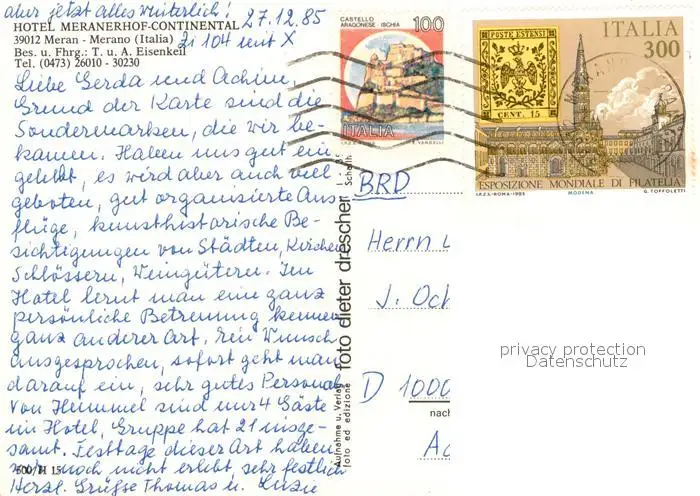 aber jetzt alles winterlich!
27.12.85
HOTEL MERANERHOF-CONTINENTAL
39012 Meran - Merano (Italia)
Zi 104 mit X
Bes. u. Fhrg.: T. u. A. Eisenkeil
Tel. (0473) 26010 - 30230
Liebe Gerda und Achim,
Grund der Karte sind die
Sondermarken, die wir be-
kamen. Haben uns gut ein
gelebt, es wird aber auch viel
geboten, gut organisierte Aus
flüge, kunsthistorische Be-
sichtigungen von Städten, Kirchen
Schlössern, Weingütern. Im
Hotel lernt man eine ganz
persönliche Betreuung kennen
ganz anderer Art. Ein Wunsch
ausgesprochen, sofort geht man
darauf ein, sehr gutes Personal
Von Hummel sind nur 4 Gäste
im Hotel, Gruppe hat 21 insge-
samt. Festtage dieser Art haben
wir noch nicht erlebt, sehr festlich
500/H 15
Herzl. Grüße Thomas u.
CASTELLO
ARAGONESE ISCHIA
100
ITALIA
I.P.Z.S. ROMA
E. VANGELLI
POSTE ESTENSI
CENT. 15
ITALIA
300
ESPOSIZIONE MONDIALE DI FILATELIA
I.P.Z.S.-ROMA-1985
MODENA
G. TOFFOLETTI
foto dieter drescher
Aufnahme u. Verlag
foto ed edizione
BRD
Herrn
J. Och
D 1000
nach
Ac
privacy protection
Datenschutz